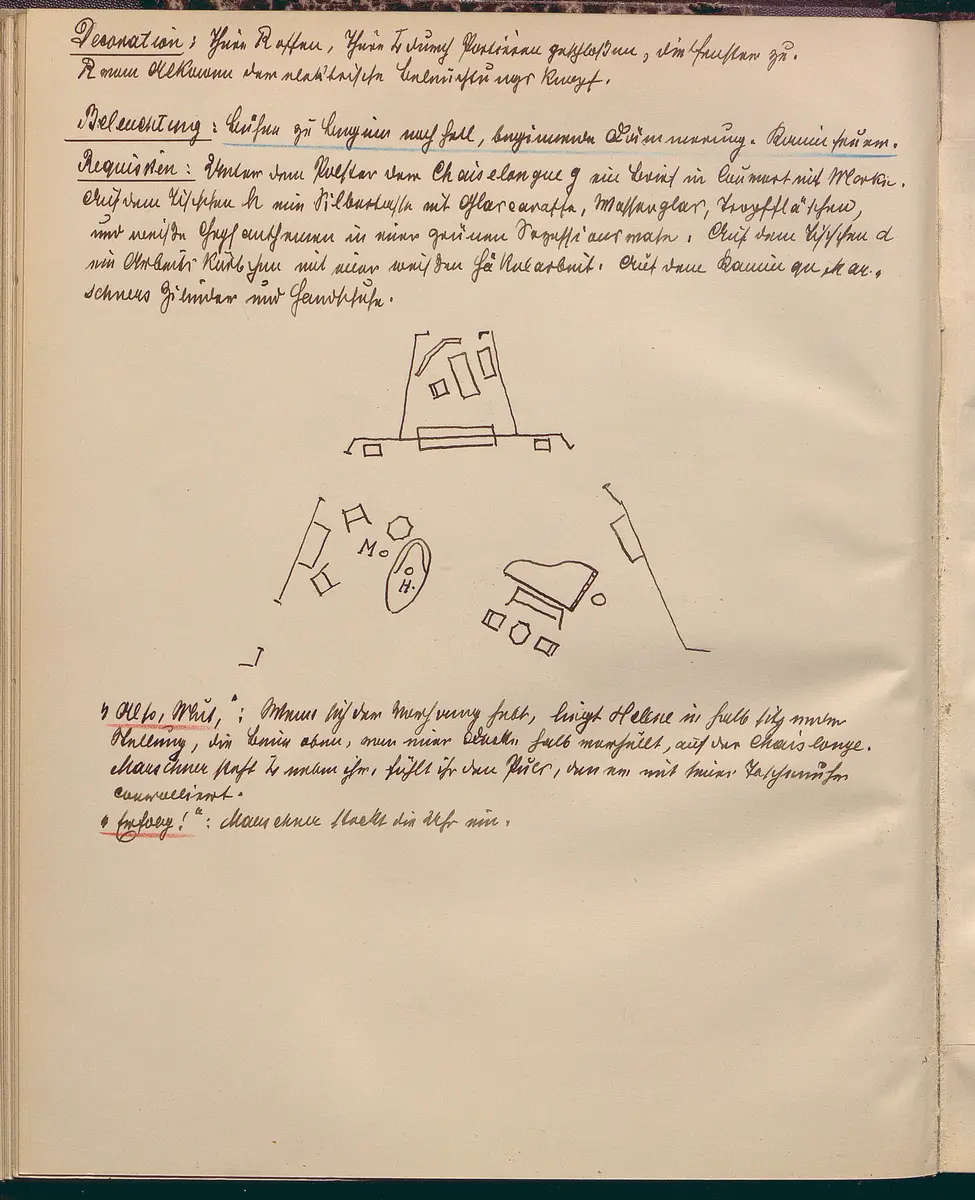 Decoration: Thüre R offen, Thüre L durch Portièren geschloßen, die Fenster zu.
R vom Alkoven der elektrische Beleuchtungsknopf.
Beleuchtung: Bühne zu Beginn noch hell, beginnende Dämmerung. Kaminfeuer.
Requisiten: Unter dem Polster der Chaiselongue g ein Brief in Couvert mit Marke.
Auf dem Tischchen h eine Silbertasse mit Glascaraffe, Wasserglas, Tropffläschchen,
und weiße Chrysanthemen in einer grünen Sezessionsvase. Auf dem Tischchen d
ein Arbeitskörbchen mit einer weißen Häkelarbeit. Auf dem Kamin Mar-
schners Zilinder und Handschuhe.
M
H.
"Also, Mut,": Wenn sich der Vorhang hebt, liegt Helene in halb sitzender
Stellung, die Beine oben, von einer Decke halb verhüllt, auf der Chaislonge.
Marschner steht L neben ihr, fühlt ihr den Puls, den er mit seiner Taschenuhr
controlliert.
"Erfolg!": Marschner steckt die Uhr ein.